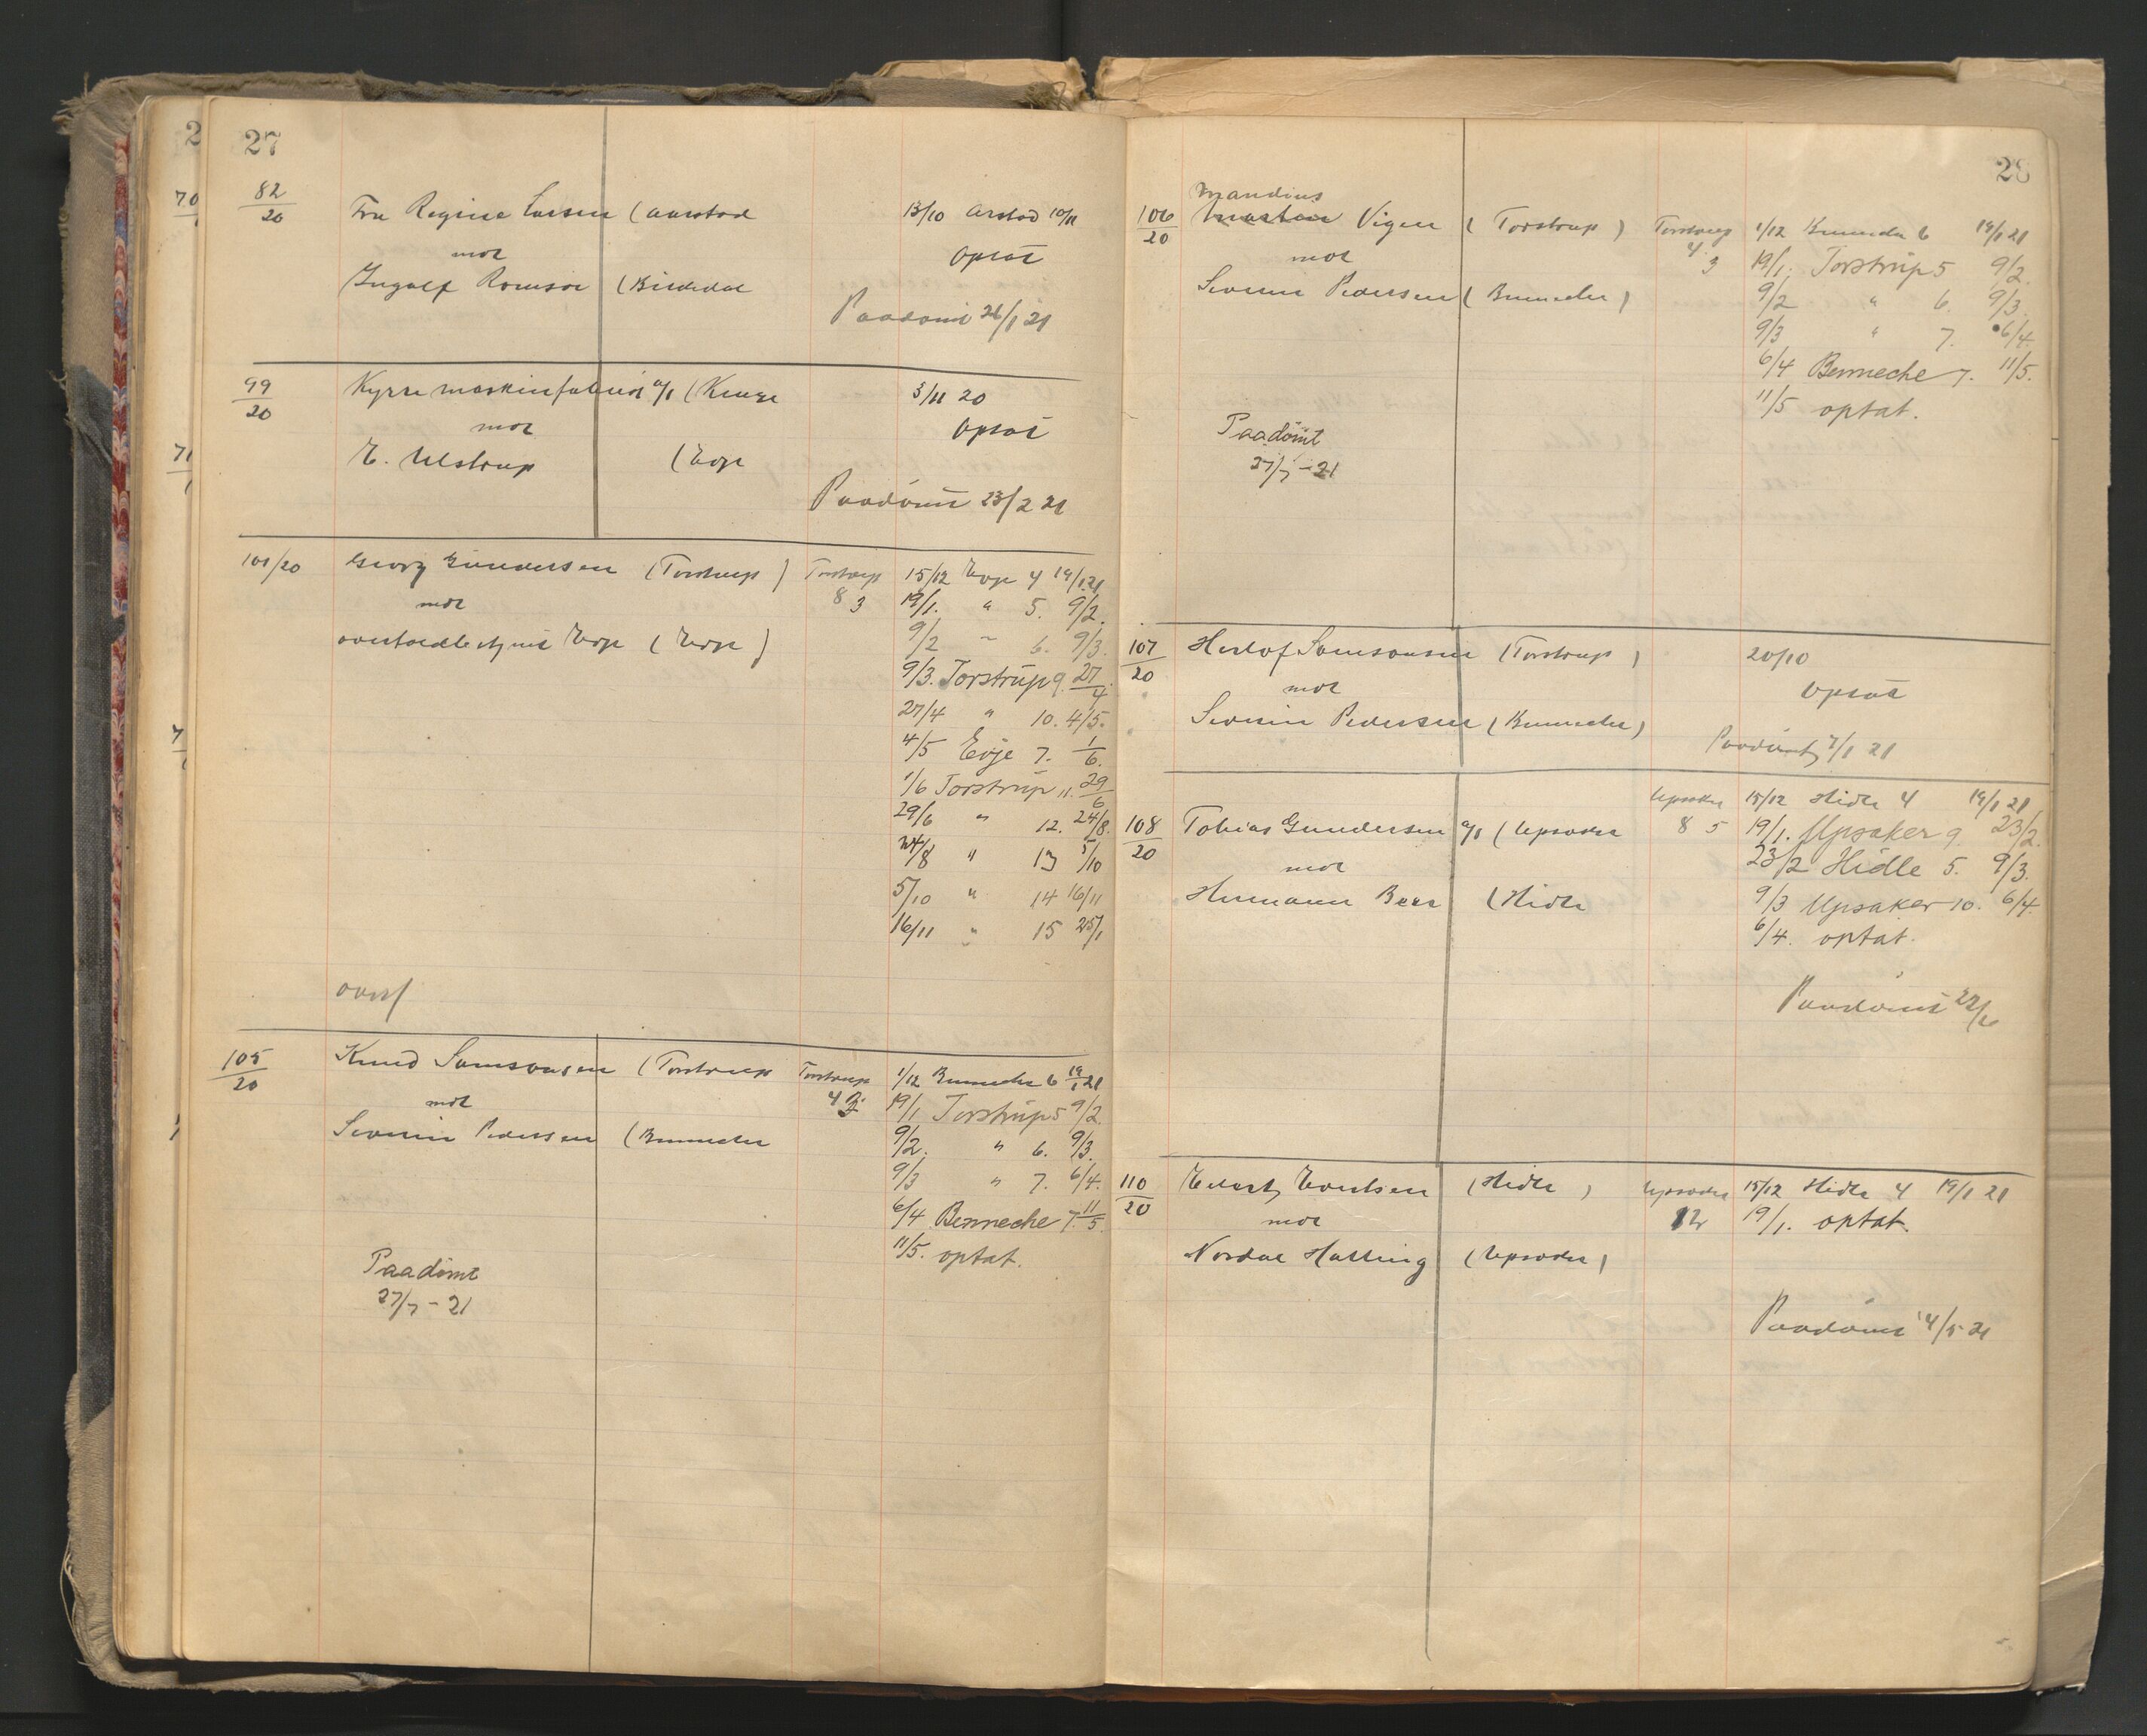 27
82/20 Fru Regine Larsen (Aarstad 13/10 Arstad 10/11
mot optat
Ingolf Romsoe (
Paadømt 26/1 21
99/20 Kyrre maskinfabrik a/s (Kenge 3/11 20
mot optat
E. Ulstrup (Evje
Paadømt 23/2 21
101/20 Georg Gundersen (Torstrup) Torstrup 15/12 Evje 4 19/1 21
mot 8 3 19/1. " 5. 9/2.
Evje (Evje) 9/2 " 6. 9/3.
9/3. Torstrup 9. 27/4.
27/4 " 10. 4/5.
4/5 Evje 7. 1/6.
1/6 Torstrup 11. 29/6
29/6 " 12. 24/8.
24/8 " 13 5/10
5/10 " 14 16/11
16/11 " 15 25/1
overf
105/20 Knud Samsonsen (Torstrup Torstrup 1/12 Bennecke 6 19/1 21
mot 4 3 19/1 Torstrup 5 9/2.
Severin Pedersen (Bennecke 9/2. " 6. 9/3.
9/3 " 7. 6/4.
6/4 Bennecke 7. 11/5.
11/5. optat.
Paadømt
27/7 - 21
28
Mandius
106/20 Vigen (Torstrup) Torstrup 1/12 Bennecke 6 19/1 21
mot 4 3 19/1. Torstrup 5 9/2.
Severin Pedersen (Bennecke) 9/2 " 6. 9/3.
9/3 " 7. 6/4.
6/4 Bennecke 7. 11/5.
11/5 optat.
Paadømt
27/7 - 21
107/20 Herlof Samsonsen (Torstrup) 20/10
mot optat
Severin Pedersen (Bennecke)
Paadømt 7/1 21
Upsaker 15/12 Hidle 4 19/1 21
108/20 Tobias Gundersen a/s (Upsaker 8 5 19/1. Upsaker 9. 23/2.
mot 23/2 Hidle 5. 9/3.
Hermann Beer (Hidle 9/3 Upsaker 10. 6/4.
6/4. optat.
Paadømt 22/6
110/20 Evertsen (Hidle) Upsaker 15/12 Hidle 4 19/1 21
mot 12 19/1. optat.
Nordal Halling (Upsaker)
Paadømt 4/5 21